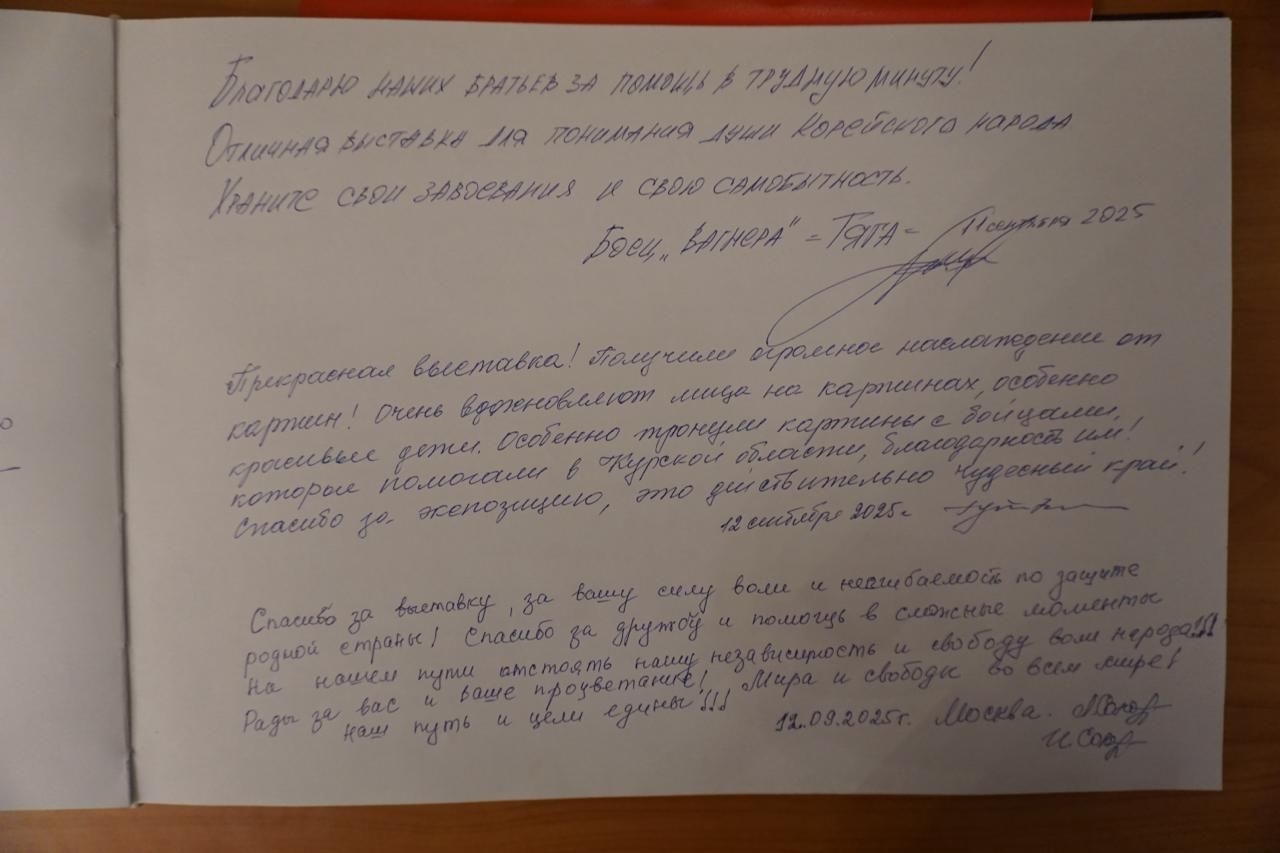 Благодарю наших братьев за помощь в трудную минуту!
Отличная выставка для понимания души Корейского народа
Храните свои завоевания и свою самобытность.
Боец „Вагнера" = Тяга = 11 сентября 2025
Прекрасная выставка! Получили огромное наслаждение от
картин! Очень вдохновляют лица на картинах, особенно
красивые дети. Особенно тронули картины с бойцами,
которые помогали в Курской области, благодарность им!
Спасибо за экспозицию, это действительно чудесный край!
12 сентября 2025г.
Спасибо за выставку, за вашу силу воли и несгибаемость по защите
родной страны! Спасибо за дружбу и помощь в сложные моменты
На нашем пути отстоять нашу независимость и свободу воли народа!!!
Рады за вас и ваше процветание! Мира и свободы во всем мире!
Наш путь и цели едины!!!
12.09.2025г. Москва.